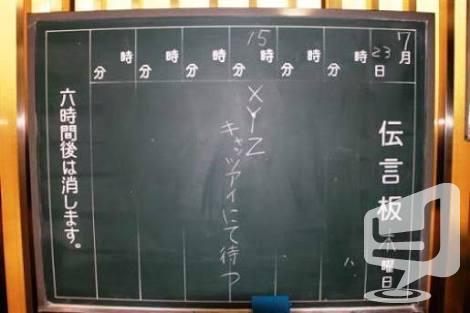 7月
23日
伝言板
木曜日
時分
時分
15時分
XYZ
キャッツアイにて待つ
時分
時分
時分
六時間後は消します。